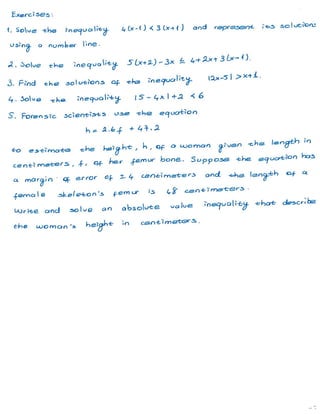 Exercises:
1. Solve the Inequality 4(x-1) < 3(x+1) and represent its solutions
using a number line.
2. Solve the inequality 5(x+2)-3x ≤ 4+2x+3(x-1).
3. Find the solutions of the inequality |2x-5| > x+1.
4. Solve the inequality |5-4x|+2 < 6
5. Forensic scientists use the equation
h = 2.6f + 47.2
to estimate the height, h, of a woman given the length in
centimeters, f, of her femur bone. Suppose the equation has
a margin of error of ± 4 centimeters and the length of a
female skeleton's femur is 48 centimeters.
Write and solve an absolute value inequality that describe
the woman's height in centimeters.